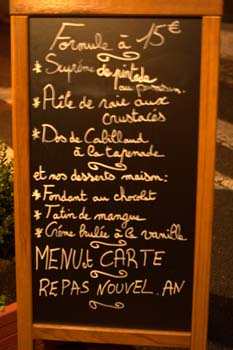 Formule à 15€
* Suprême de pintade
au parmesan.
* Aile de raie aux
crustacés
* Dos de Cabillaud
à la tapenade
et nos desserts maison:
* Fondant au chocolat
* Tatin de mangue
* Crème brulée à la vanille
MENU et CARTE
REPAS NOUVEL.AN